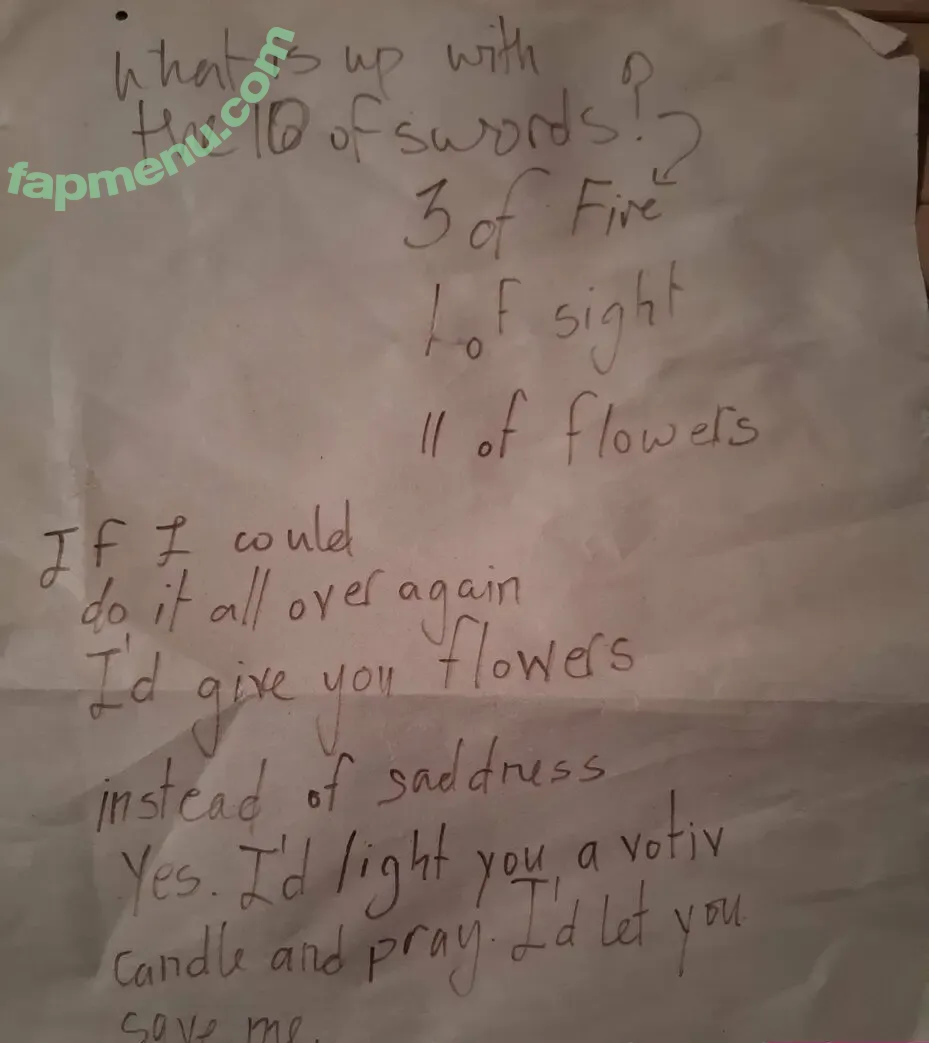 What is up with
the 10 of swords?
3 of Fire
1 of sight
11 of flowers
If I could
do it all over again
I'd give you flowers
instead of saddness
Yes. I'd light you a votiv
candle and pray. I'd let you
save me.
fapmenu.com